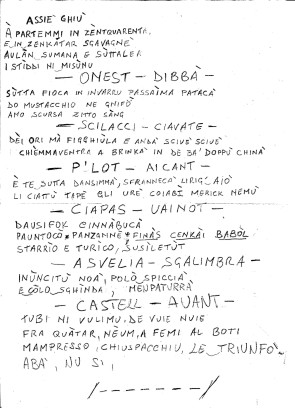 ASSIE' GHIU'
À PARTEMMI IN ZENTQUARENTA
E IN ZENKATAR SGAVAGNÈ
AULÀN, SUMANA E SUTTALER
I STIDDI NI MISÙNU
— ONEST — DIBBÀ —
SÙTTA PIOCA IN INVARRU PASSAIMA PATACÀ
DO MUSTACCHIO NE GNIFÒ
AMO SCURSA ZITTO SÀNG
— SCILACCI — CIAVATE —
DÈI ORI MÀ FIGGHIULA E ANDÀ SCIUÈ SCIUÈ
CHIÈMMAVENTRA A BRINKA IN DE BA' DOPPU CHINA
— P'LOT — AICANT —
È TE DUTTA DANSIMMÀ, SFRANNECÀ LIRIG' AIO'
LI CIATU TAPÈ GLI URÈ COIABÈ MERICK NEMU
— CIAPAS — UAINOT —
DAUSIFOK CINNABUCA
PAUNTOCO * PANZANNE * FINÀS CENKÀI BABÒL
STARRIO E TURICO, SUSILETUT
— ASVELIA — SGALIMBRA —
INÙNCITU NOÀ, POLÒ SPICCIÀ
E CÒLO SGHINDA, MENPATURRA
— CASTELL — AVANT —
TUBI NI VULIMU. DE VUIE NUIE
FRA QUÀTAR, NÈUM, A FEMI AL BOTI
MAMPRESSO, CHIUSPACCHIU, LE TRIUNFO'
ABÀ, NU SI,